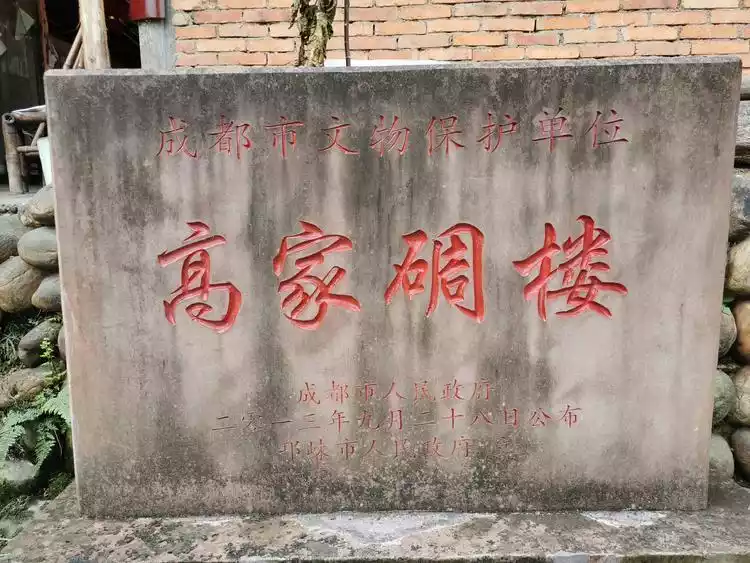 成都市文物保护单位
高家碉楼
成都市人民政府
二〇一三年九月二十八日公布
邛崃市人民政府